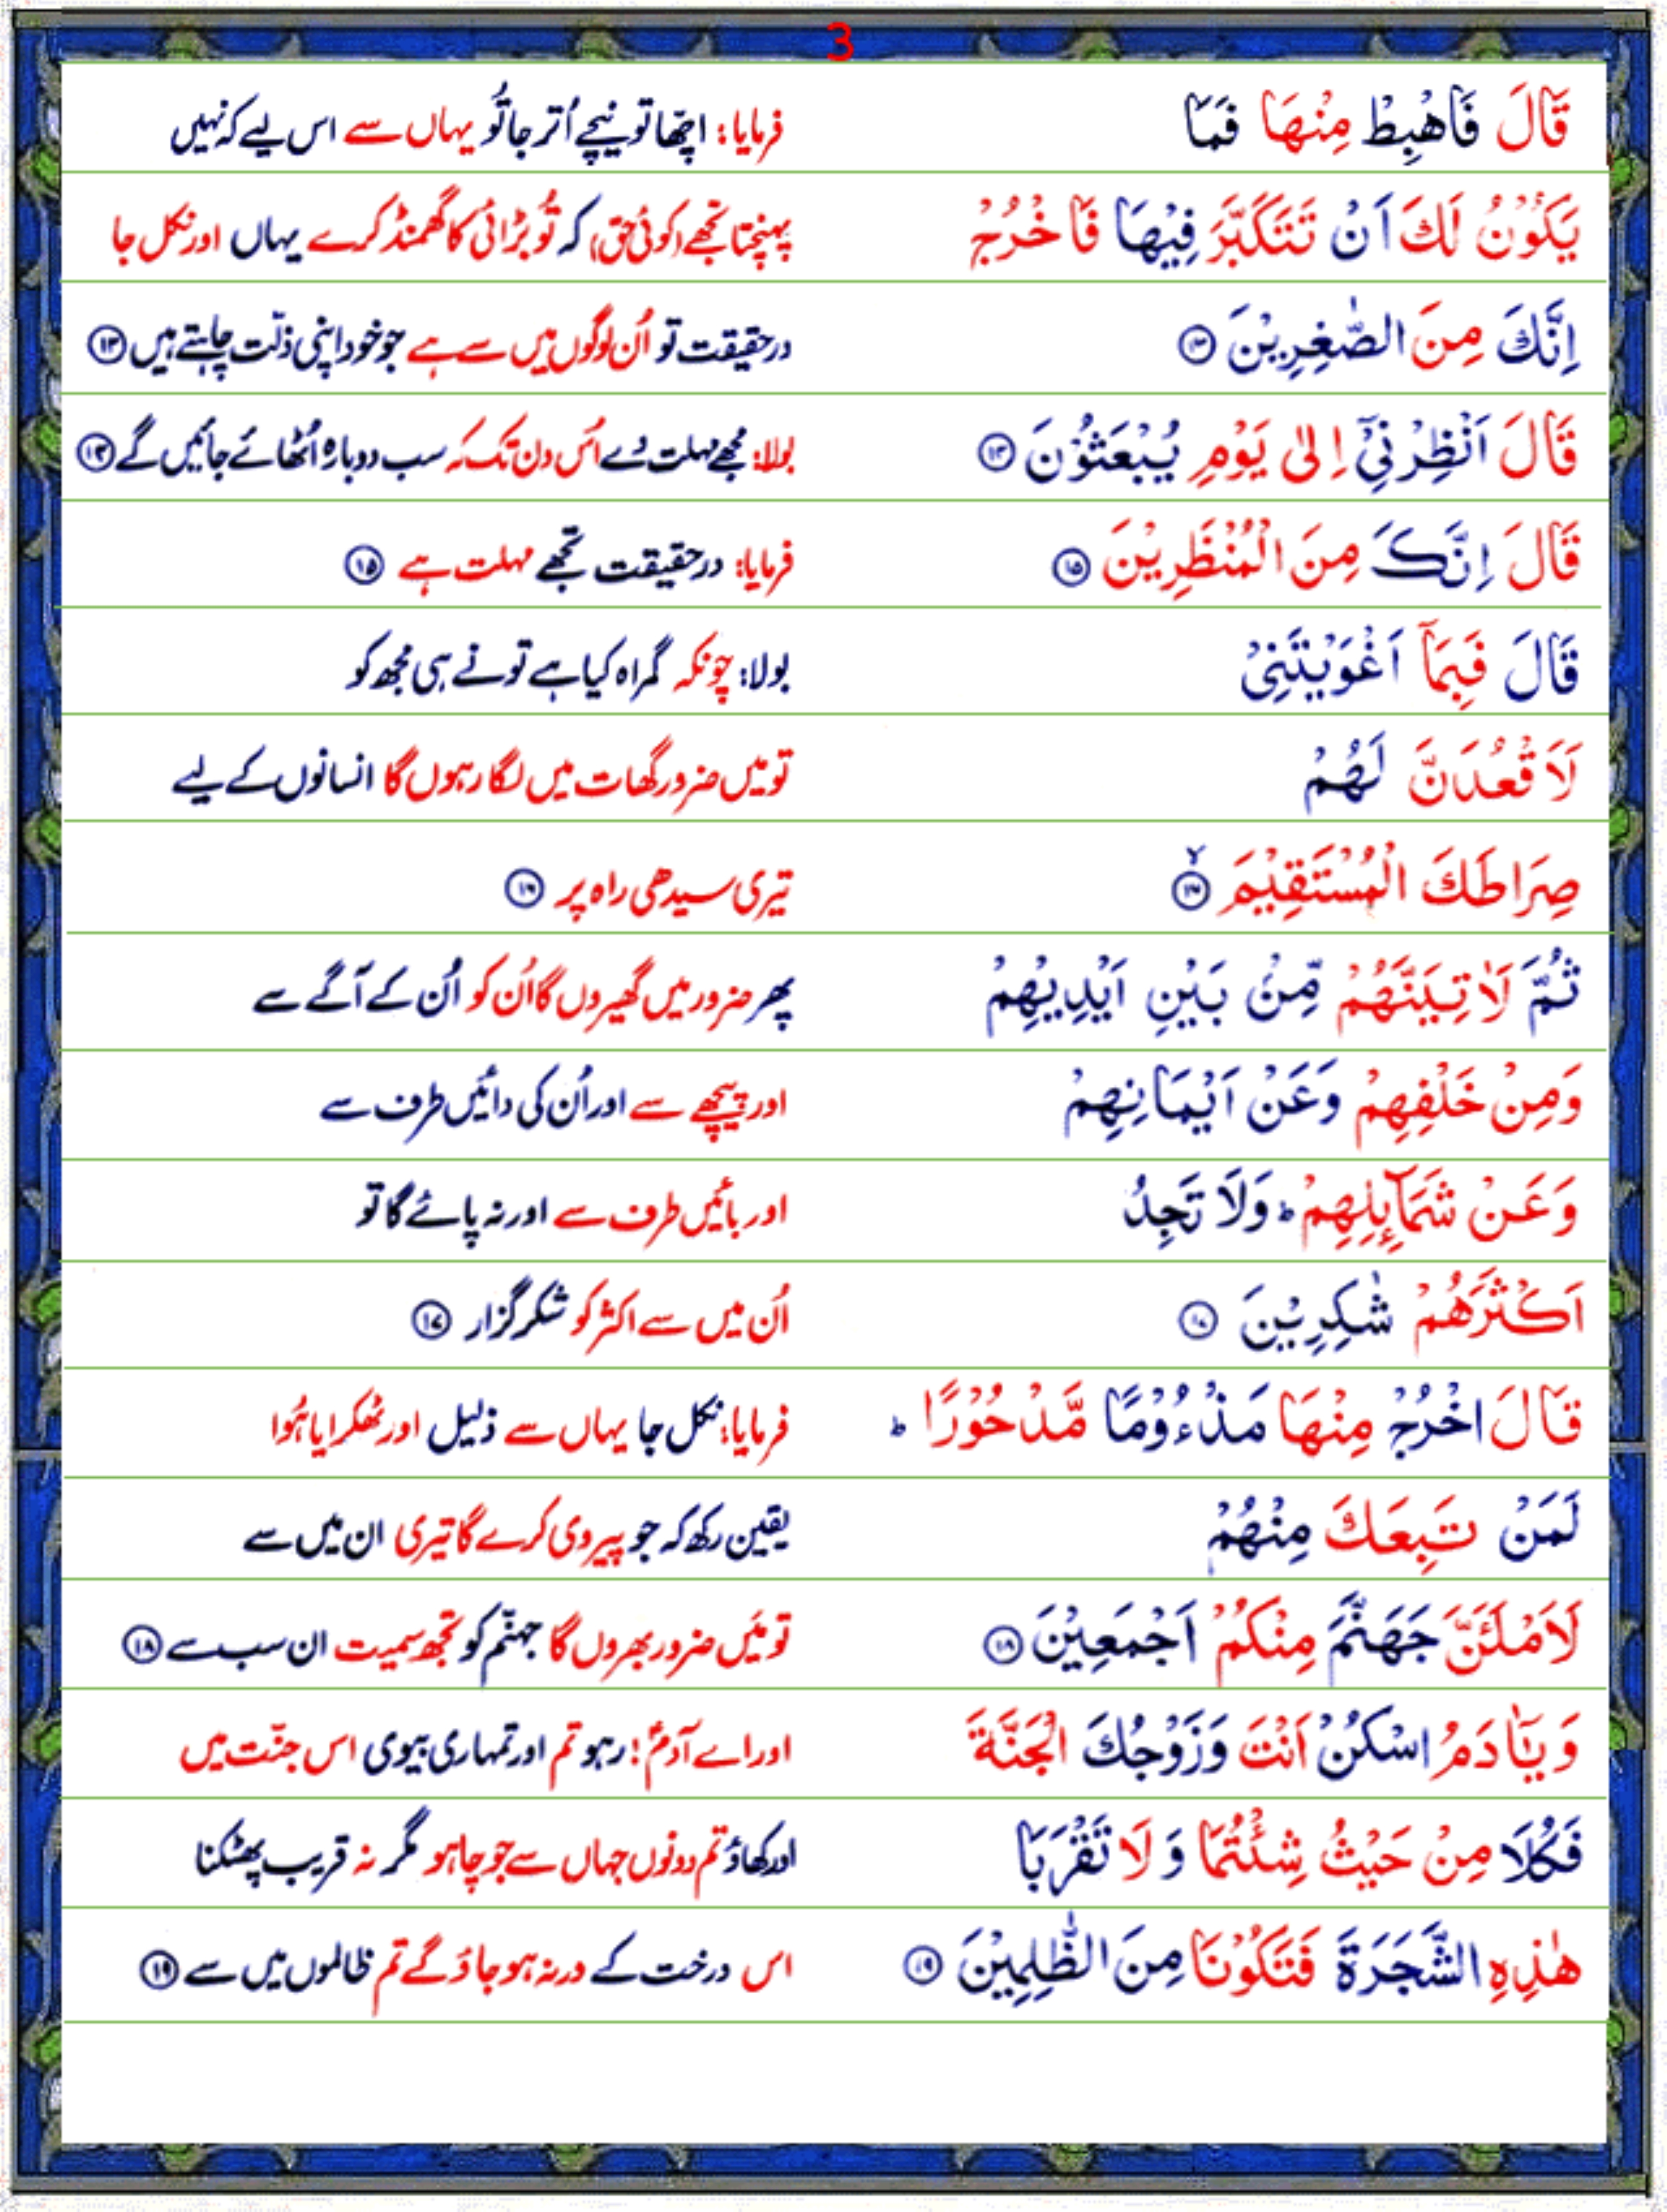 3
قَالَ فَاهْبِطْ مِنْهَا فَمَا
فرمایا: اچّھا تو نیچے اُتر جا تُو یہاں سے اس لیے کہ نہیں
يَكُوْنُ لَكَ اَنْ تَتَكَبَّرَ فِيْهَا فَاخْرُجْ
پہنچتا تجھے (کوئی حق) کہ تُو بڑائی کا گھمنڈ کرے یہاں اور نکل جا
اِنَّكَ مِنَ الصّٰغِرِيْنَ ۝۱۳
درحقیقت تو اُن لوگوں میں سے ہے جو خود اپنی ذلّت چاہتے ہیں ۝۱۳
قَالَ اَنْظِرْنِيْٓ اِلٰى يَوْمِ يُبْعَثُوْنَ ۝۱۴
بولا: مجھے مہلت دے اُس دن تک کہ سب دوبارہ اُٹھائے جائیں گے ۝۱۴
قَالَ اِنَّكَ مِنَ الْمُنْظَرِيْنَ ۝۱۵
فرمایا: درحقیقت تجھے مہلت ہے ۝۱۵
قَالَ فَبِمَآ اَغْوَيْتَنِيْ
بولا: چونکہ گمراہ کیا ہے تو نے ہی مجھ کو
لَاَقْعُدَنَّ لَهُمْ
تو میں ضرور گھات میں لگا رہوں گا انسانوں کے لیے
صِرَاطَكَ الْمُسْتَقِيْمَ ۝۱۶ۙ
تیری سیدھی راہ پر ۝۱۶
ثُمَّ لَاٰتِيَنَّهُمْ مِّنْ بَيْنِ اَيْدِيْهِمْ
پھر ضرور میں گھیروں گا اُن کو اُن کے آگے سے
وَمِنْ خَلْفِهِمْ وَعَنْ اَيْمَانِهِمْ
اور پیچھے سے اور اُن کی دائیں طرف سے
وَعَنْ شَمَآئِلِهِمْ ؕ وَلَا تَجِدُ
اور بائیں طرف سے اور نہ پائے گا تو
اَكْثَرَهُمْ شٰكِرِيْنَ ۝۱۷
اُن میں سے اکثر کو شکر گزار ۝۱۷
قَالَ اخْرُجْ مِنْهَا مَذْءُوْمًا مَّدْحُوْرًا ؕ
فرمایا: نکل جا یہاں سے ذلیل اور ٹھکرایا ہُوا
لَمَنْ تَبِعَكَ مِنْهُمْ
یقین رکھ کہ جو پیروی کرے گا تیری ان میں سے
لَاَمْلَئَنَّ جَهَنَّمَ مِنْكُمْ اَجْمَعِيْنَ ۝۱۸
تو میَں ضرور بھروں گا جہنّم کو تجھ سمیت ان سب سے ۝۱۸
وَيٰٓاٰدَمُ اسْكُنْ اَنْتَ وَزَوْجُكَ الْجَنَّةَ
اور اے آدمؑ! رہو تم اور تمہاری بیوی اس جنّت میں
فَكُلَا مِنْ حَيْثُ شِئْتُمَا وَلَا تَقْرَبَا
اور کھاؤ تم دونوں جہاں سے جو چاہو مگر نہ قریب پھٹکنا
هٰذِهِ الشَّجَرَةَ فَتَكُوْنَا مِنَ الظّٰلِمِيْنَ ۝۱۹
اس درخت کے ورنہ ہو جاؤ گے تم ظالموں میں سے ۝۱۹